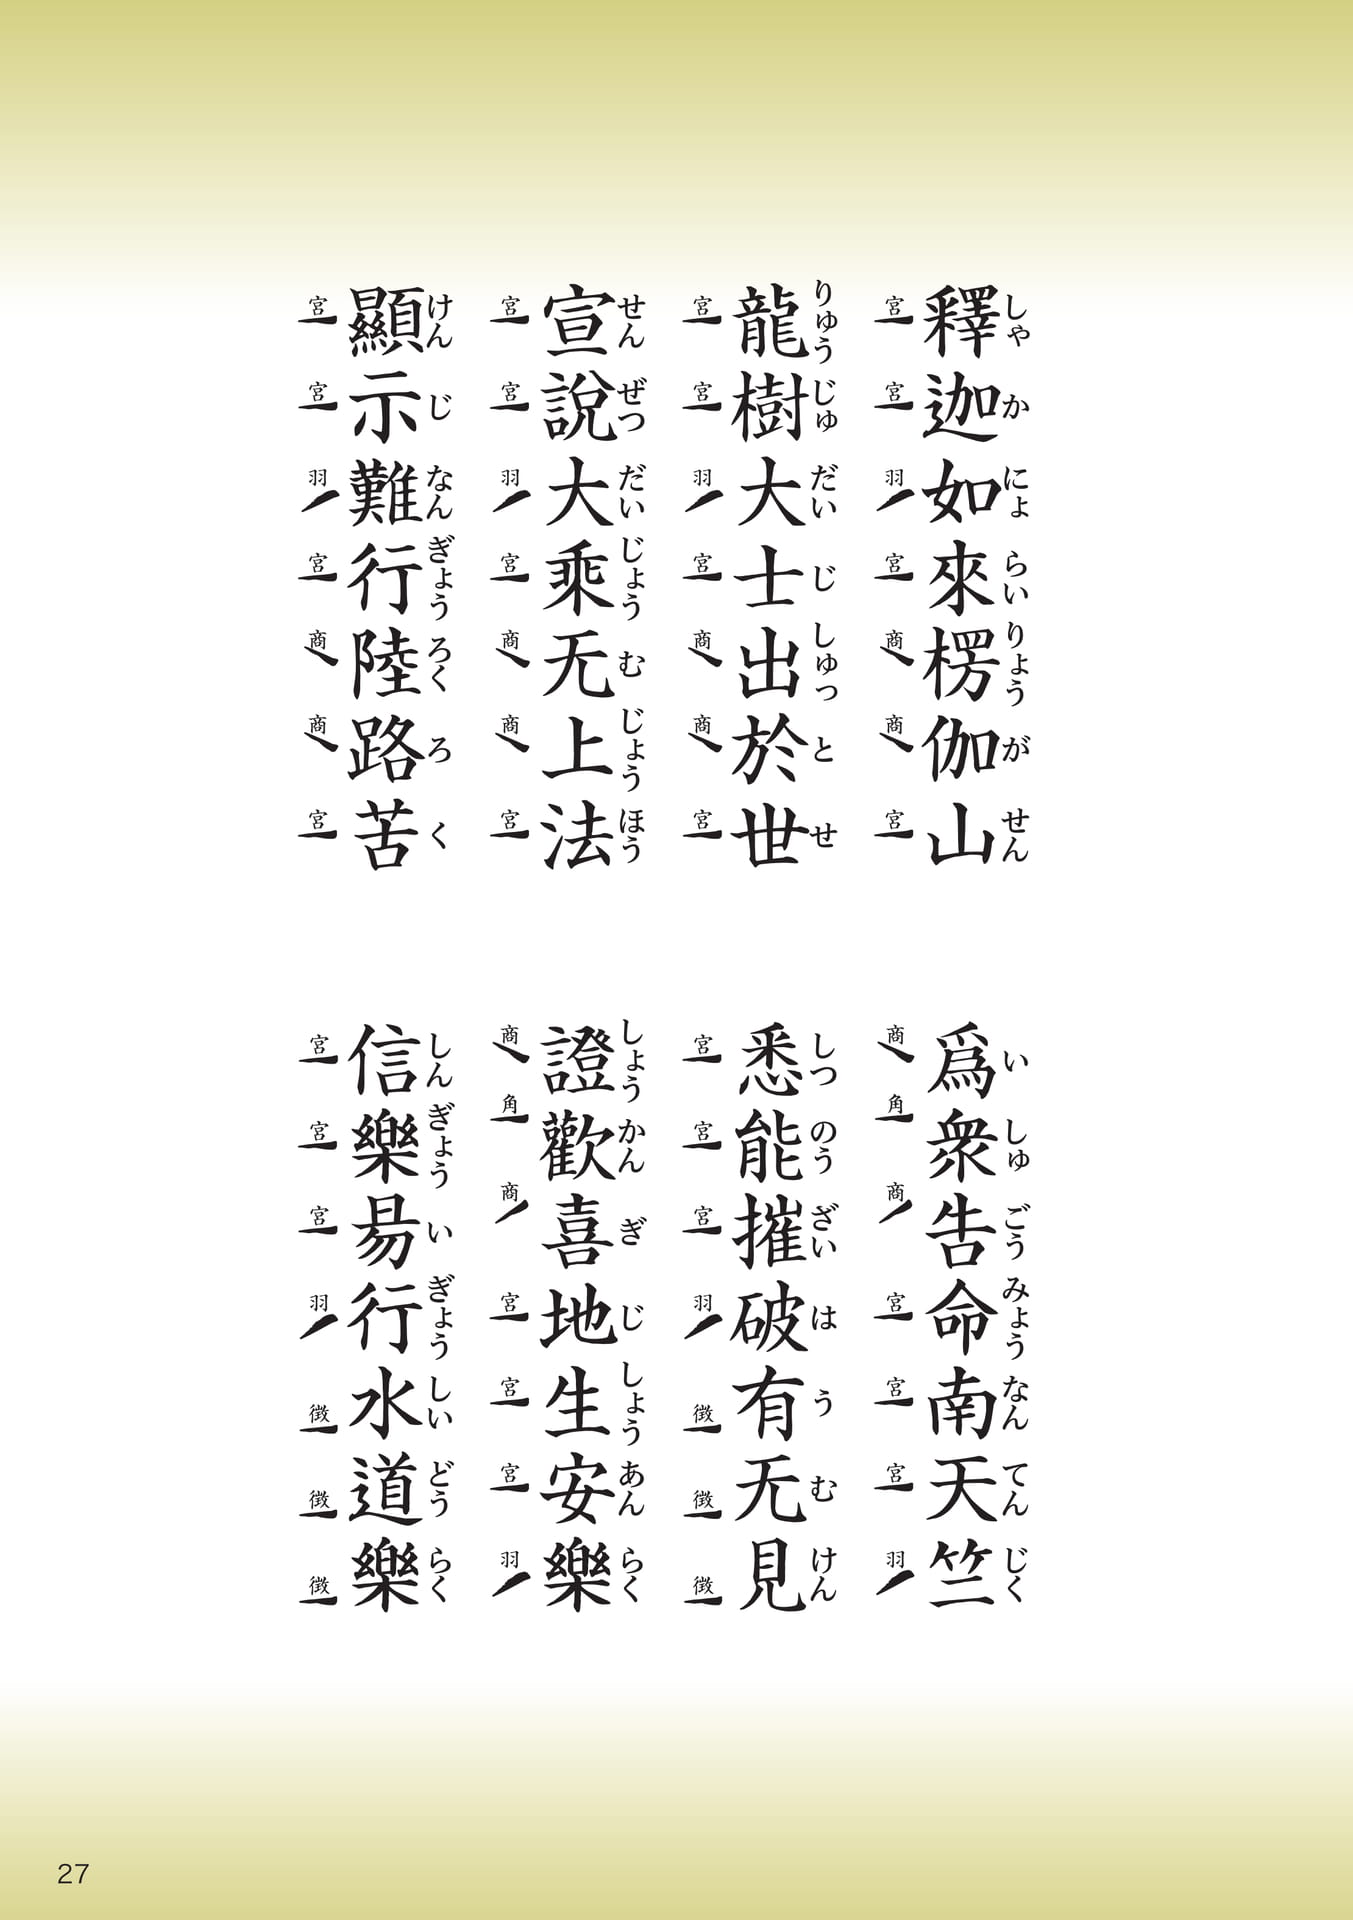 釋迦如來楞伽山
しゃかにょらいりょうがせん
宮宮羽宮商商宮
爲衆告命南天竺
いしゅごうみょうなんてんじく
商角商宮宮宮羽
龍樹大士出於世
りゅうじゅだいじしゅっとせ
宮宮羽宮商商宮
悉能摧破有无見
しつのうざいはうむけん
宮宮宮羽徴徴徴
宣說大乘无上法
せんぜつだいじょうむじょうほう
宮宮羽宮商商宮
證歡喜地生安樂
しょうかんぎじしょうあんらく
商角商宮宮宮羽
顯示難行陸路苦
けんじなんぎょうろくろく
宮宮羽宮商商宮
信樂易行水道樂
しんぎょういぎょうしいどうらく
宮宮宮羽徴徴徴
27